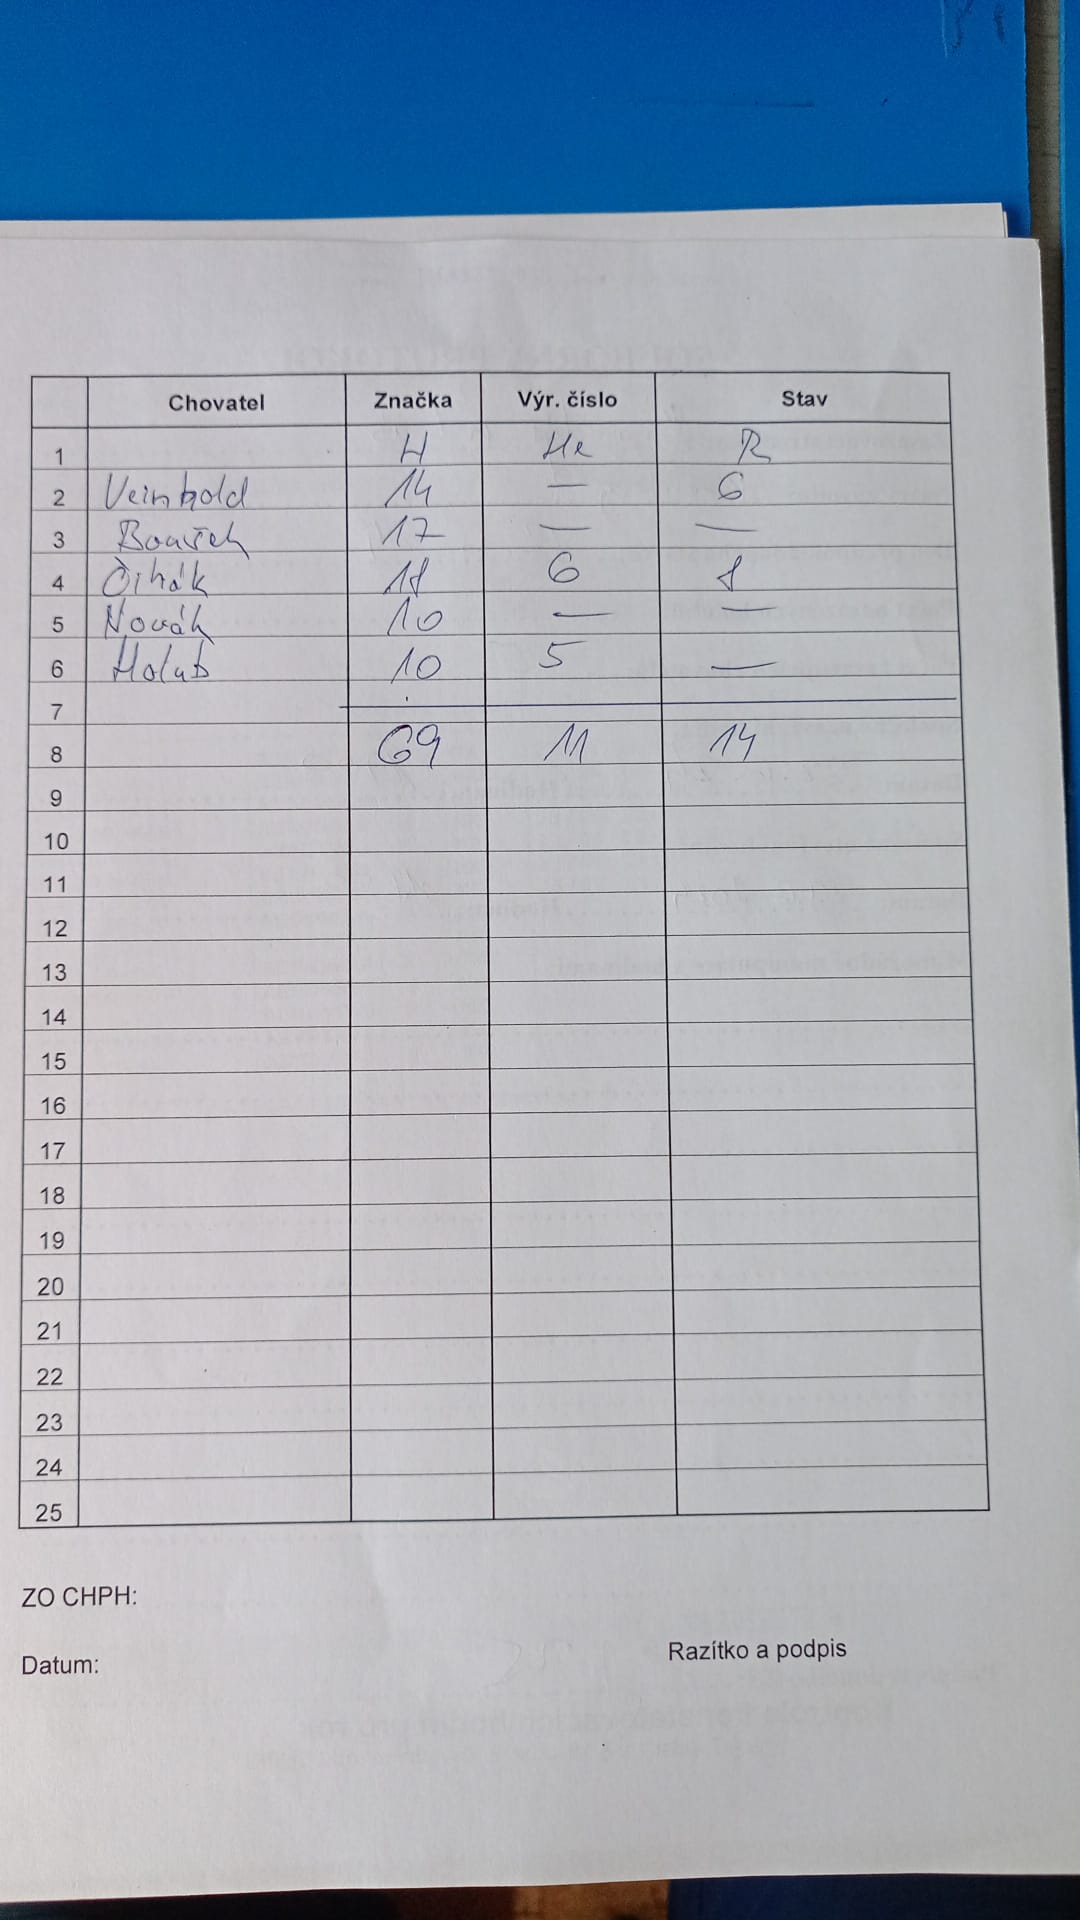 Chovatel Značka Výr. číslo Stav
1 H He R
2 Veinhold 14 — 6
3 Bouřek 17 — —
4 Čihák 18 6 8
5 Novák 10 — 
6 Holub 10 5 —
7
8 69 11 14
9
10
11
12
13
14
15
16
17
18
19
20
21
22
23
24
25
ZO CHPH:
Datum: Razítko a podpis